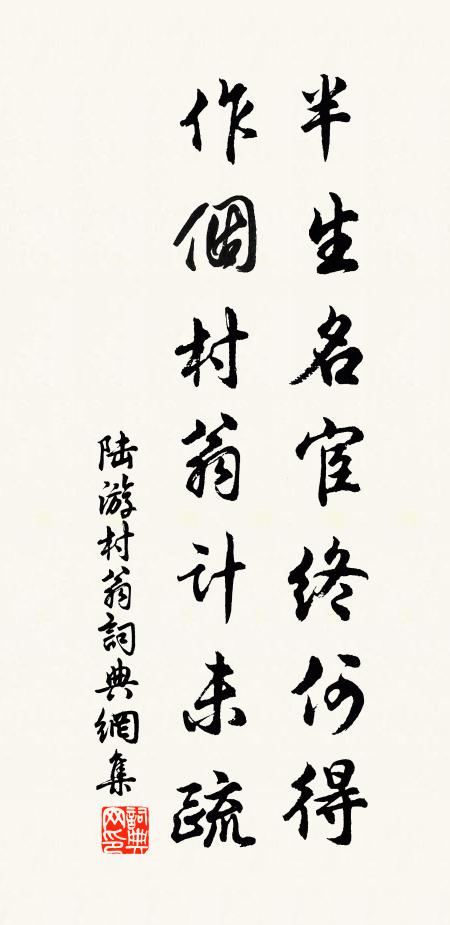 半生名宦終何得
作個村翁计未疏
陆游村翁詞典網集
詞典网印